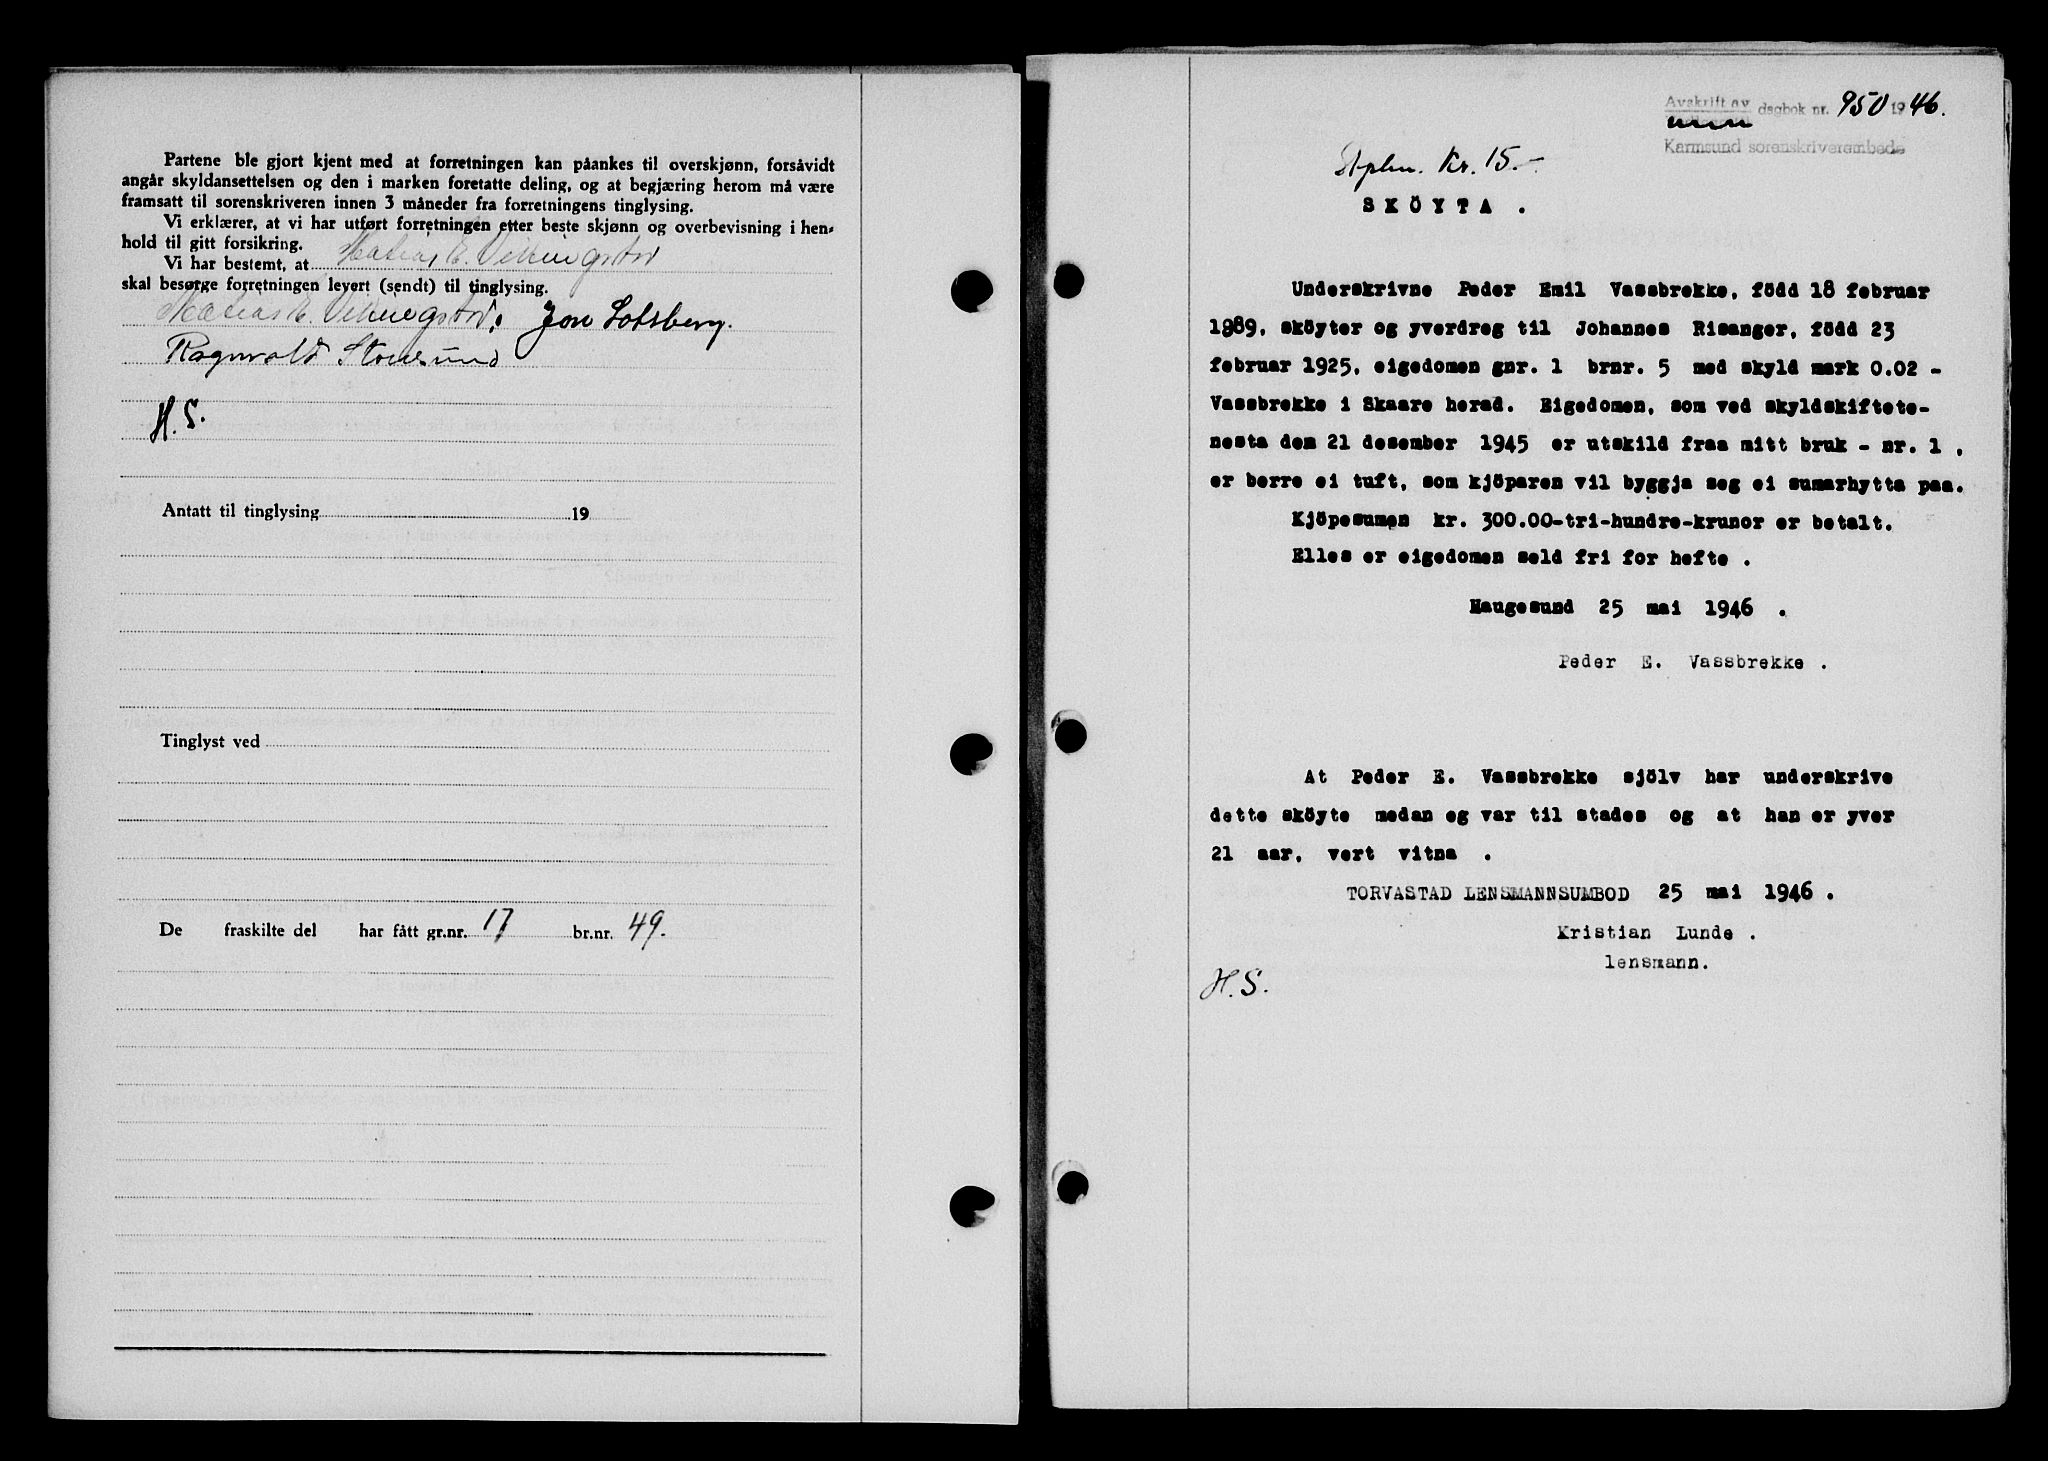 Partene ble gjort kjent med at forretningen kan påankes til overskjønn, forsåvidt
angår skyldansettelsen og den i marken foretatte deling, og at begjæring herom må være
framsatt til sorenskriveren innen 3 måneder fra forretningens tinglysing.
Vi erklærer, at vi har utført forretningen etter beste skjønn og overbevisning i hen-
hold til gitt forsikring.
Vi har bestemt, at Matias E. Vikingstad
skal besørge forretningen levert (sendt) til tinglysing.
Matias E. Vikingstad. Jon Lotsberg.
Ragnvald Stonesund
H. S.
Antatt til tinglysing 19
Tinglyst ved
De fraskilte del har fått gr.nr. 17 br.nr. 49.
Avskrift av dagbok nr. 950 1946.
Karmsund sorenskriverembede
Kr. 15.-
SKÖYTA .
Underskrivne Peder Emil Vassbrekke, född 18 februar
1989, sköyter og yverdreg til Johannes Risanger, född 23
februar 1925, eigedomen gnr. 1 brnr. 5 med skyld mark 0.02 -
Vassbrekke i Skaare herad. Eigedomen, som ved skyldskiftete-
nesta dem 21 desember 1945 er utskild fraa mitt bruk - nr. 1 ,
er berre ei tuft, som kjöparen vil byggja seg ei sumarhytta paa.
Kjöpesumen kr. 300.00-tri-hundre-krunor er betalt.
Elles er eigedomen seld fri for hefte .
Haugesund 25 mai 1946 .
Peder E. Vassbrekke .
At Peder E. Vassbrekke sjölv har underskrive
dette sköyte medan eg var til stades og at han er yver
21 aar, vert vitna .
TORVASTAD LENSMANNSUMBOD 25 mai 1946 .
Kristian Lunde .
lensmann.
H. S.